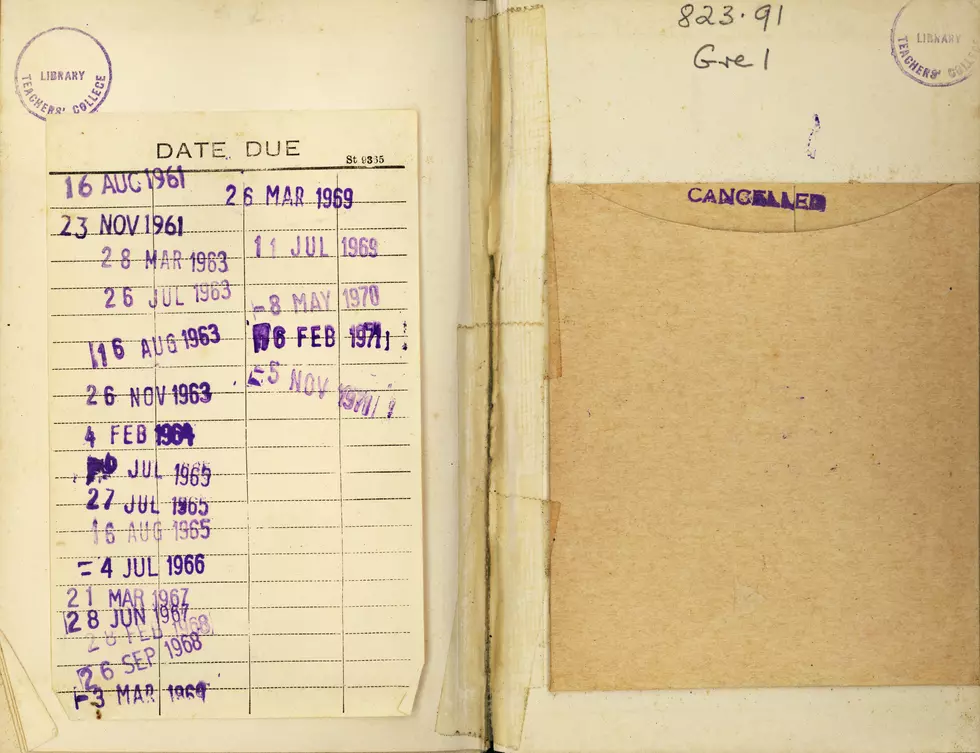 LIBRARY
TEACHERS' COLLEGE
DATE DUE
St 9365
16 AUG 1961
23 NOV 1961
28 MAR 1963
26 JUL 1963
16 AUG 1963
26 NOV 1963
4 FEB 1964
JUL 1965
27 JUL 1965
16 AUG 1965
-4 JUL 1966
21 MAR 1967
28 JUN 1967
28 FEB 1968
26 SEP 1968
-3 MAR 1969
26 MAR 1969
11 JUL 1969
-8 MAY 1970
FEB 1971
-5 NOV 1971
823.91
Gre 1
LIBRARY
TEACHERS' COLLEGE
CANCELLED